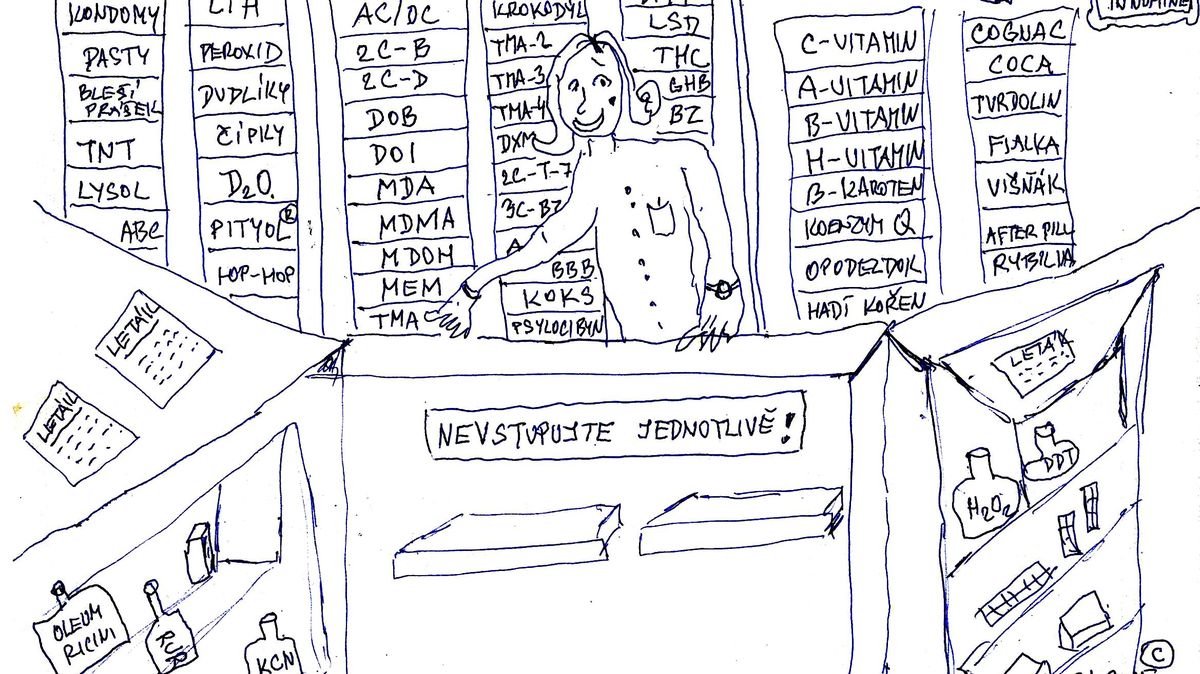 KONDOMY
PASTY
BLEŠÍ
PRÁŠEK
TNT
LYSOL
ABC
PEROXID
DUDLÍKY
ČÍPKY
D2O
PITYOL®
HOP-HOP
AC/DC
2C-B
2C-D
DOB
DOI
MDA
MDMA
MDOM
MEM
TMA
KROKODÝL
TMA-2
TMA-3
TMA-4
DXM
2C-T-7
3C-BZ
BBB
KOKS
PSYLOCIBYN
LSD
THC
GHB
BZ
C-VITAMIN
A-VITAMIN
B-VITAMIN
H-VITAMIN
B-KAROTEN
KOENZYM Q
OPODELDOK
HADÍ KOŘEN
COGNAC
COCA
TVRDOLIN
FIALKA
VIŠŇÁK
AFTER PILL
LETÁK
LETÁK
LETÁK
NEVSTUPUJTE JEDNOTLIVĚ!
H2O2
DDT
OLEUM
RICINI
RUR
KCN
©